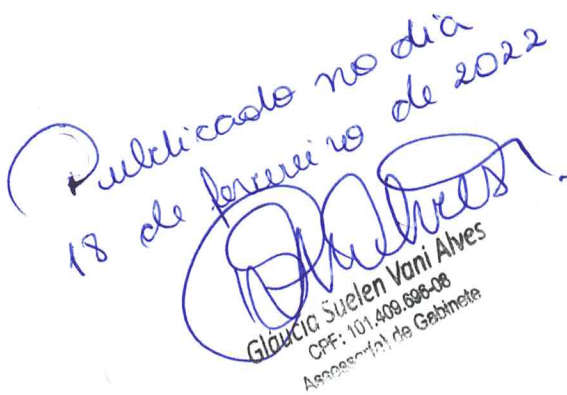 Publicado no dia
18 de fevereiro de 2022
Gláucia Suelen Vani Alves
CPF: 101.409.696-08
Assessor(a) de Gabinete